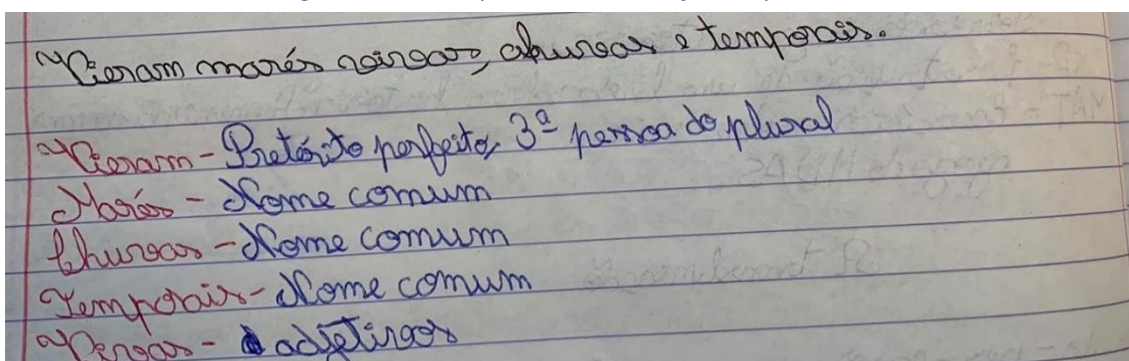 Vieram marés vivas, chuvas e temporais.
Vieram - Pretérito perfeito, 3ª pessoa do plural
Marés - Nome comum
Chuvas - Nome comum
Temporais - Nome comum
Vivas - adjetivos